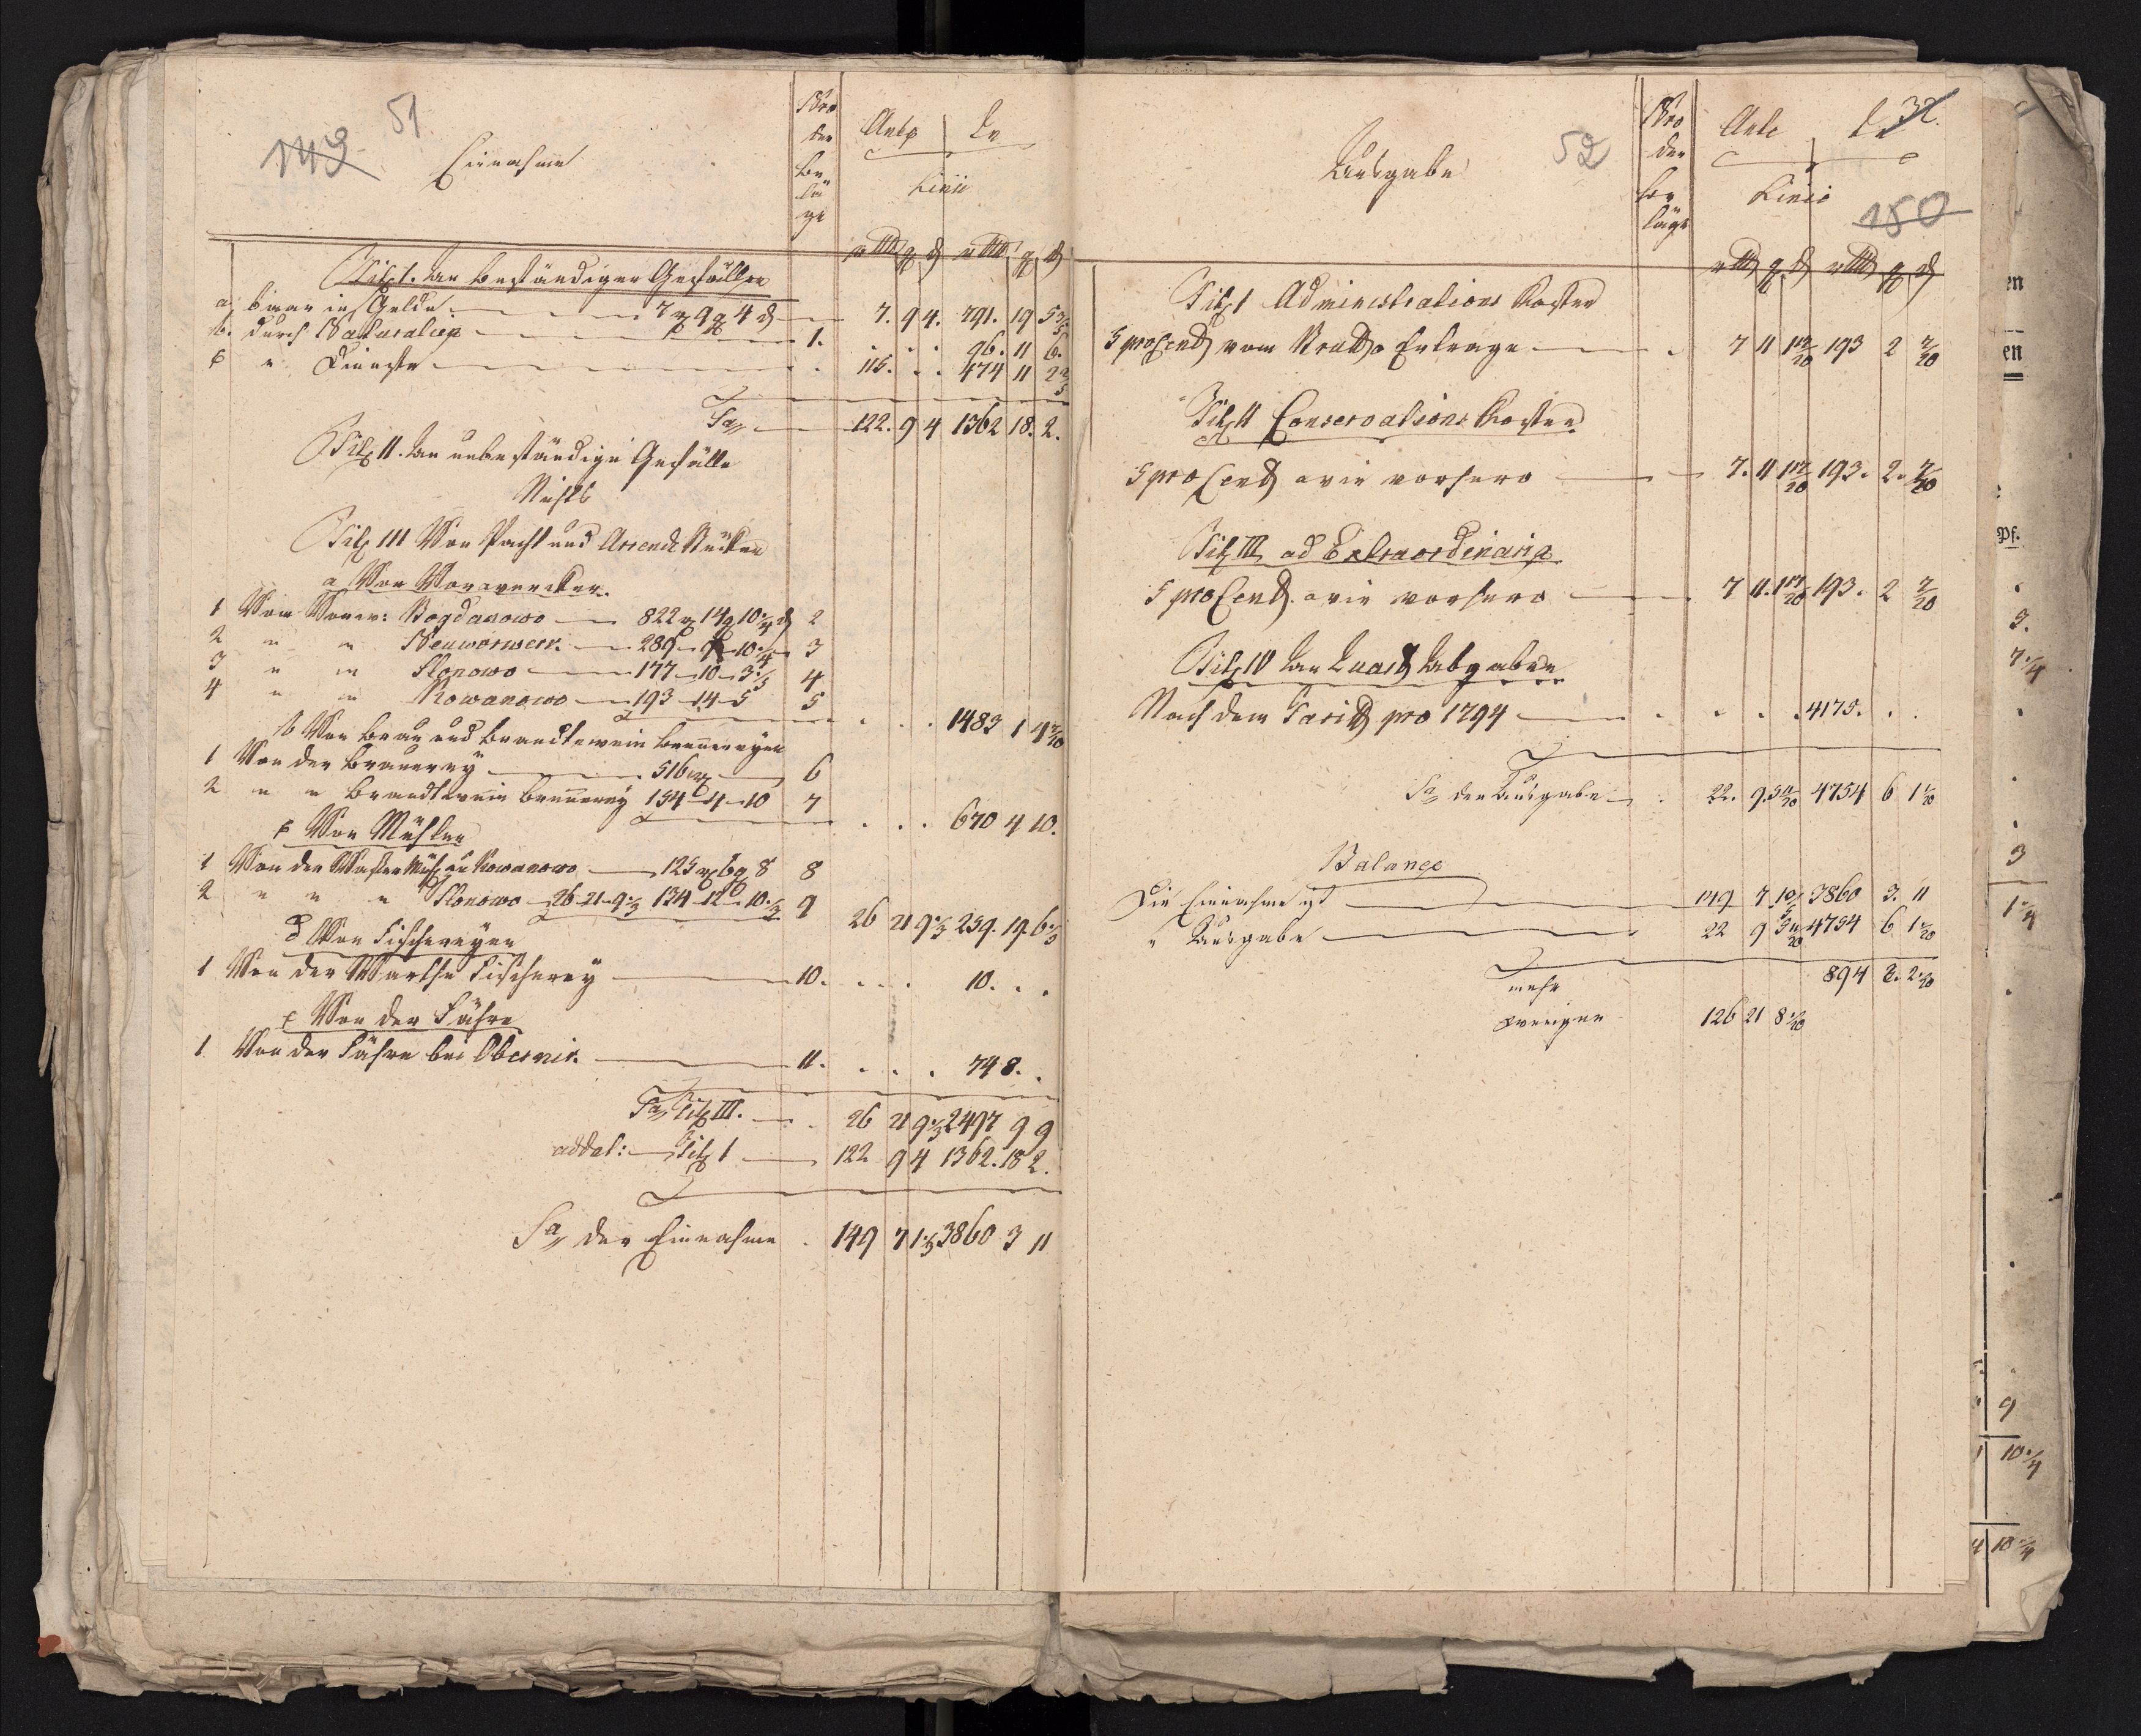 149 51
Einnahme
Nro der Beläge
Ante De
Linie
rthl g d rthl g d
Tit. I. An beständigen Gefällen
a baar in Gelde 7 r 9 g 4 d 7. 9 4. 791. 19 5 3/5
b. durch Naturalien 1. 96. 11 6.
c " Dienste 115. 474 11 2 2/5
Sa 122. 9 4 1362 18. 2.
Tit. II. An unbeständige Gefälle
Nichts
Tit. III Von Pacht und Arende Stücken
a Von Vorwercker.
1 Vom Vorw: Bogdanowo 822 r 14 g 10 1/4 d 2
2 " " Neuworwerk 289 9 10 1/4 3
3 " " Slonowo 177 10 3 1/5 4
4 " " Rowanowo 193 14 5 5
1483 1 4 7/10
b Von Brau und Brandtwein Brennereyen
1 Von der Brauerey 516 r 6
2 " " Brandtwein Brennerey 154 4 10 7
670 4 10.
c Von Mühlen
1 Von der Wasser Mühl zu Rowanowo 125 r 6 g 8 8
2 " " " Slonowo 26 21 9 1/5 134 12 10 1/3 9
26 21 9 1/3 259. 19. 6 1/3
d Von Fischereyen
1 Von der Warthe Fischerey 10. 10.
e Von der Fähre
1 Von der Fähre bei Obernik. 11. 74 8.
Sa Tit III. 26 21 9 1/3 2497 9 9
addat: Tit I 122 9 4 1362. 18 2.
Sa der Einnahme 149 7 1 1/3 3860 3 11
52 32.
Ausgabe
Nro der Beläge
Ante De
Linie
150
rthl g d rthl g d
Tit. I Administrations Kosten
5 pro Cent vom Brutto Ertrage 7 11 1 17/20 193 2 7/20
Tit. II Conservations Kosten
5 pro Cent wie vorhero 7. 11 1 17/20 193. 2. 7/20
Tit III ad Extraordinaria
5 pro Cent wie vorhero 7 11. 1 17/20 193. 2 7/20
Tit. IV An Quart Abgaben
Nach dem Tariff pro 1794 4175.
Sa der Ausgabe 22. 9. 5 11/20 4754 6 1 1/20
Balance
Die Einnahme ist 149 7 1 1/3 3860 3. 11
" Ausgabe 22 9 5 11/20 4754 6 1 1/20
mehr 894 2. 2 1/20
weniger 126 21 8 1/20
en
en
Pf.